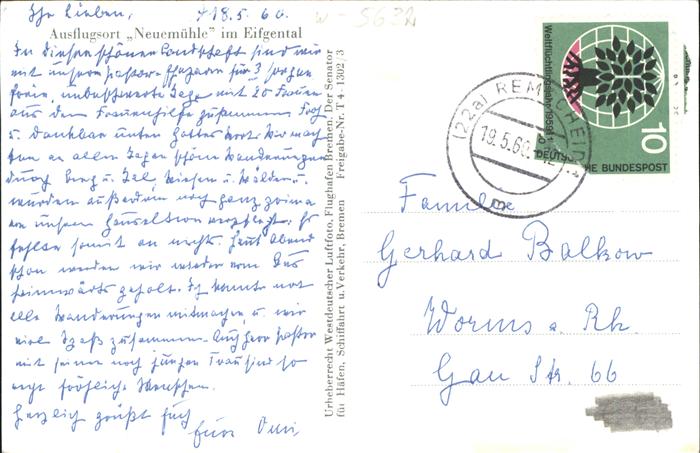 Ihr Lieben, 18.5.60.
Ausflugsort „Neuemühle" im Eifgental
In dieser schönen Landschaft sind wir
mit unserm Pastor für 3 sorgen
freie, unbeschwerte Tage mit 20 Frauen
aus der Frauenhilfe zusammen. Froh
u. dankbar unter Gottes Wort. Wir mach
ten an allen Tagen schöne Wanderungen
durch Berg u. Tal, Wiesen u. Wälder u.
wurden außerdem noch ganz prima
von unsern verpflegt. Es
fehlte somit an nichts. Heut Abend
schon werden wir wieder vom Bus
heimwärts geholt. Ich konnte
alle Wanderungen mitmachen u. wir
viel Spaß zusammen. Auch Herr Pastor
mit seiner noch jungen Frau sind so
recht fröhliche Menschen.
Herzlich grüßt Euch
Eure Omi
Urheberrecht Westdeutscher Luftfoto, Flughafen Bremen. Der Senator
für Häfen, Schiffahrt u. Verkehr, Bremen Freigabe-Nr. T 4-1302/3
W-563
Weltflüchtlingsjahr 1959/
10
DEUTSCHE BUNDESPOST
(22a) REMSCHEID
19.5.60.
Familie
Gerhard Balkow
Worms a. Rh
Gau Str. 66